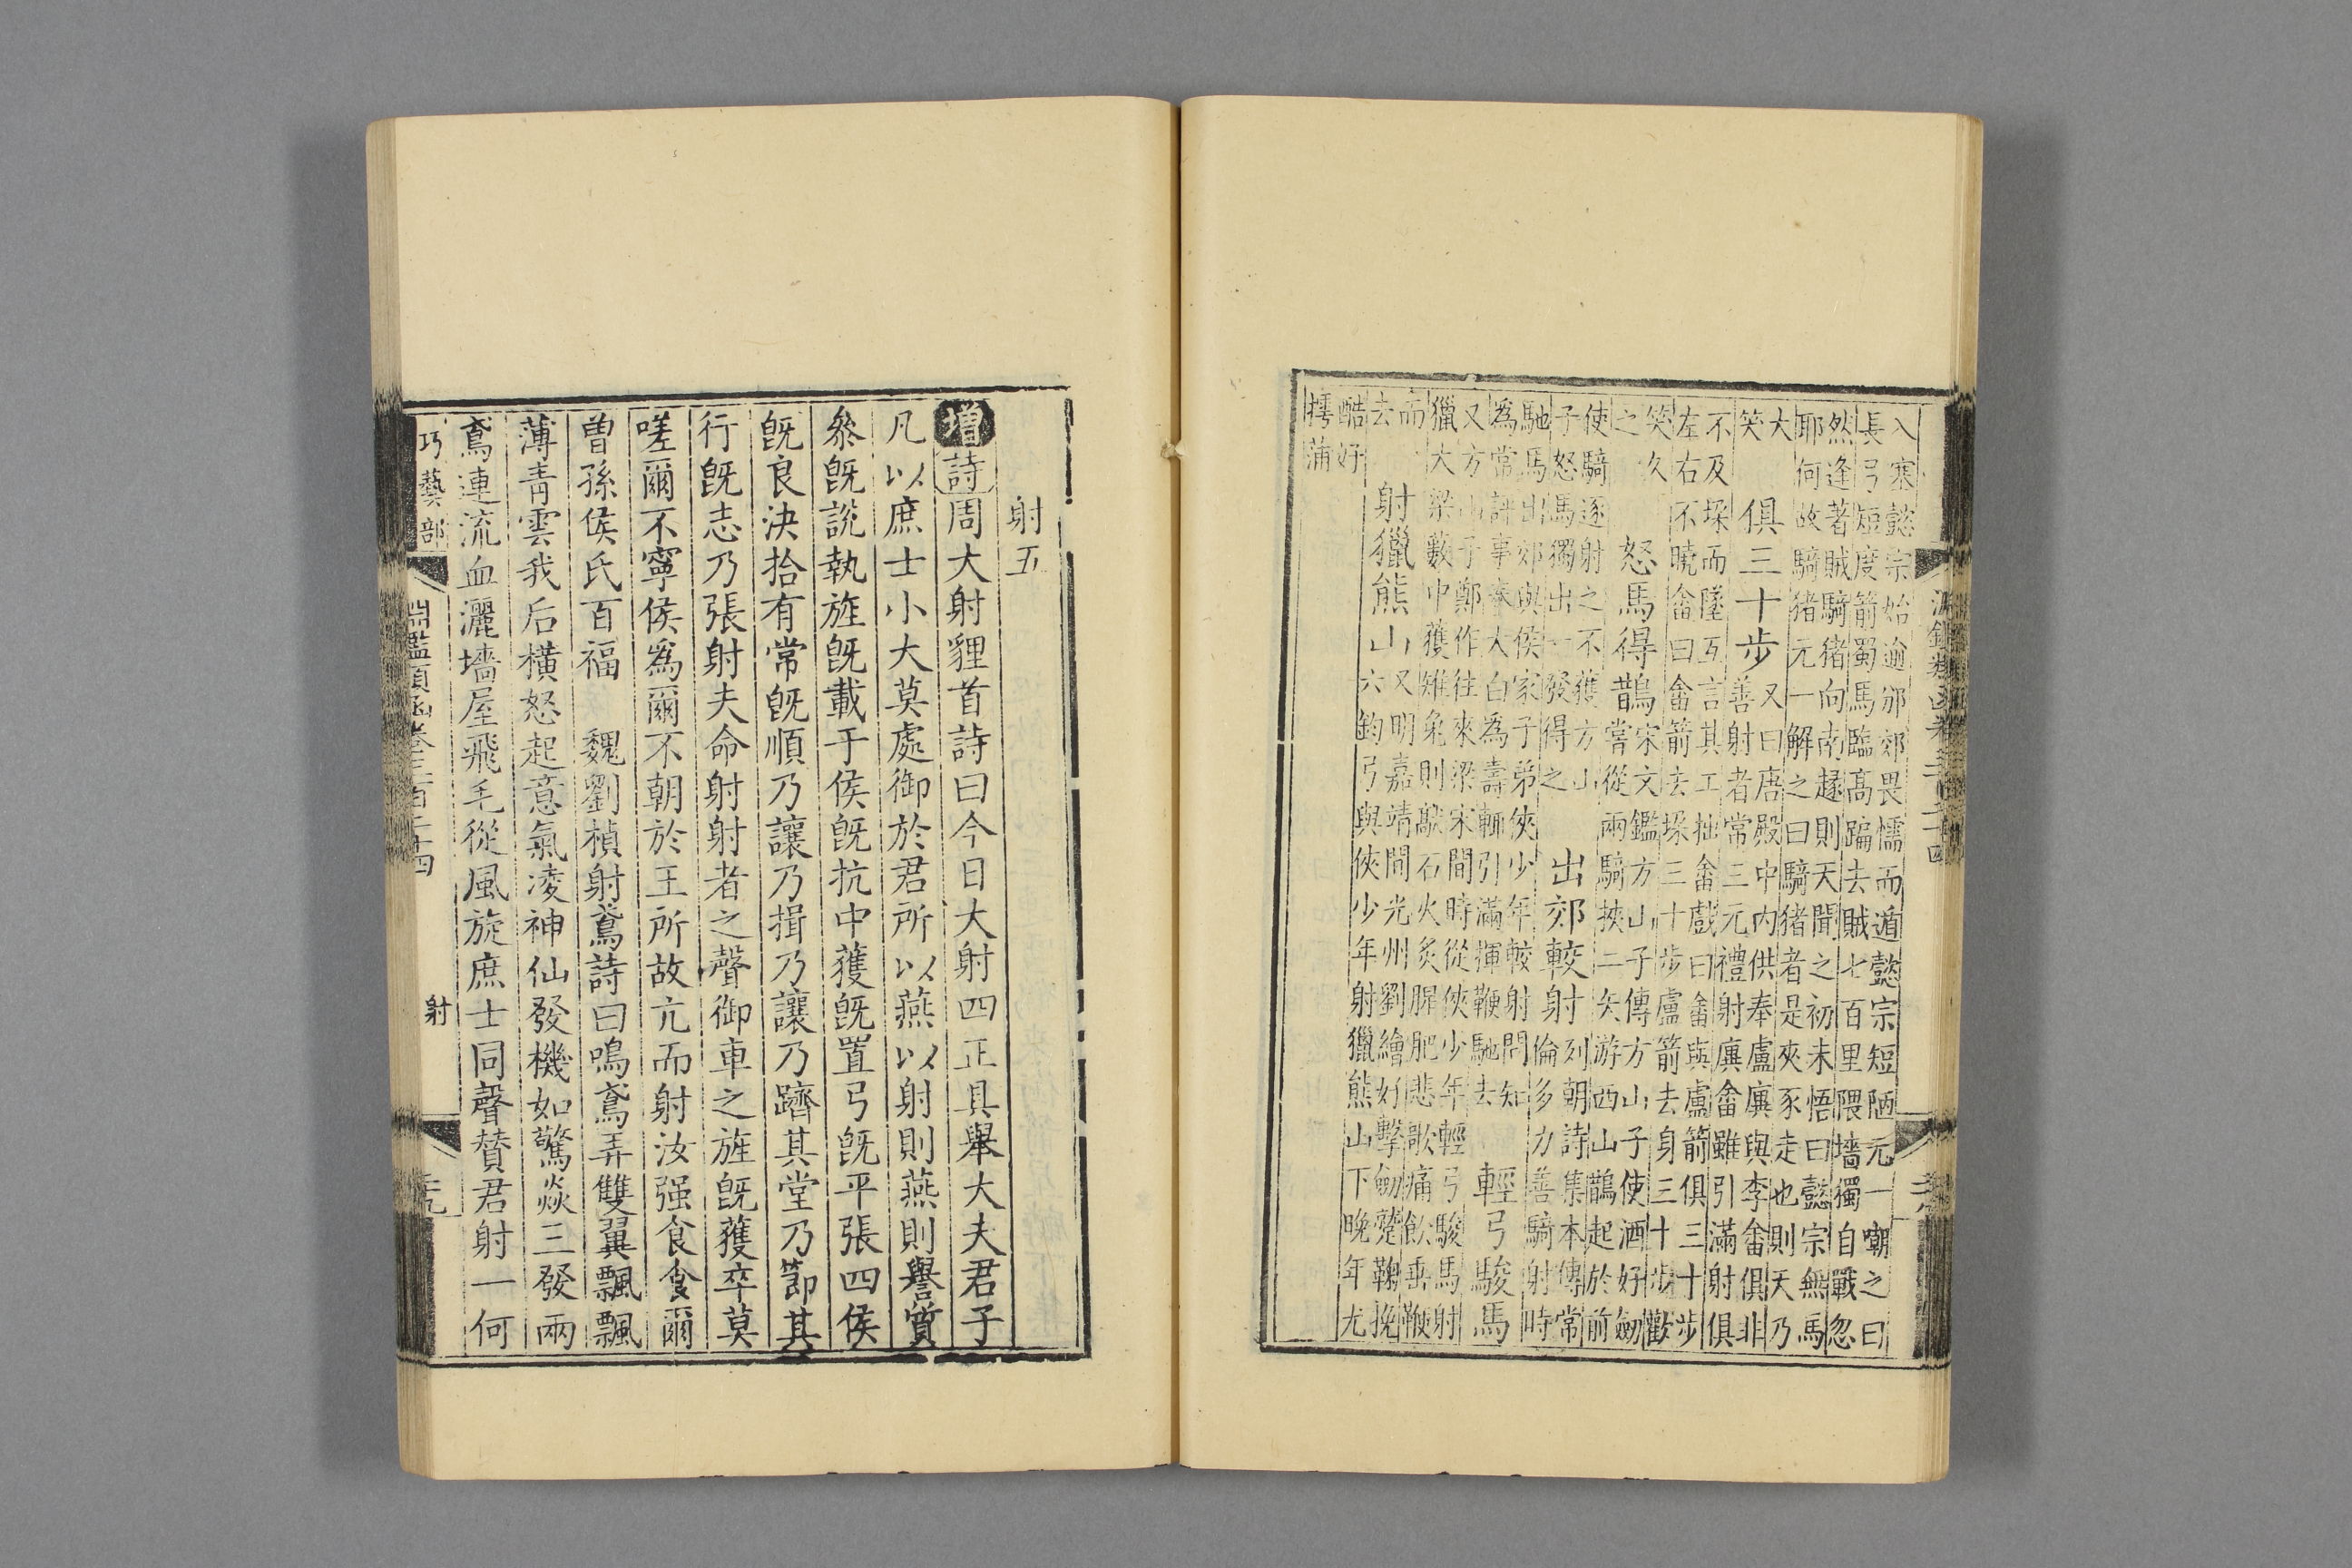 入塞懿宗始逾邠郊畏懦而遁懿宗短陋元一嘲之曰
長弓短度箭蜀馬臨高蹁去賊七百里隈墻獨自戰忽
然逢著賊騎猪向南趚則天聞之初未悟曰懿宗無馬
耶何故騎猪元一解之曰騎猪者是夾豕走也則天乃
大
笑
俱三十步
又曰唐殿中内供奉盧廙與李畬俱非
善射者常三元禮射廙畬雖引滿射俱
不及垜而墜互言其工拙畬戲曰畬與盧箭俱三十步
左右不曉畬曰畬箭去垜三十步盧箭去身三十步歡
笑久
之
怒馬得鵲
宋文鑑方山子傳方山子使酒好劒
嘗從兩騎挾二矢游西山鵲起於前
使騎逐射之不獲方山
子怒馬獨出一發得之
出郊較射
列朝詩集本傳常
倫多力善騎射時
馳馬出郊與侯家子弟俠少年較射問知
為常評事奉大白為壽輒引滿揮鞭馳去
輕弓駿馬
又方山子鄭作往來梁宋間時從俠少年輕弓駿馬射
獵大梁藪中獲雉兔則敲石火炙腥肥悲歌痛飲垂鞭
而
去
射獵熊山
又明嘉靖間光州劉繪好擊劒蹵鞠挽
六鈞弓與俠少年射獵熊山下晚年尤
酷好
摴蒲
射五
增詩周大射貍首詩曰今日大射四正具舉大夫君子
凡以庶士小大莫處御於君所以燕以射則燕則譽質
叅旣設執旌旣載于侯旣抗中獲旣置弓旣平張四侯
旣良決拾有常旣順乃讓乃揖乃讓乃躋其堂乃節其
行旣志乃張射夫命射射者之聲御車之旌旣獲卒莫
嗟爾不寧侯爲爾不朝於王所故亢而射汝强食食爾
曾孫侯氏百福　魏劉楨射鳶詩曰鳴鳶弄雙翼飄飄
薄青雲我后橫怒起意氣凌神仙發機如驚焱三發兩
鳶連流血灑墻屋飛毛從風旋庶士同聲賛君射一何
巧藝部
淵鑑類函卷三百二十四
射